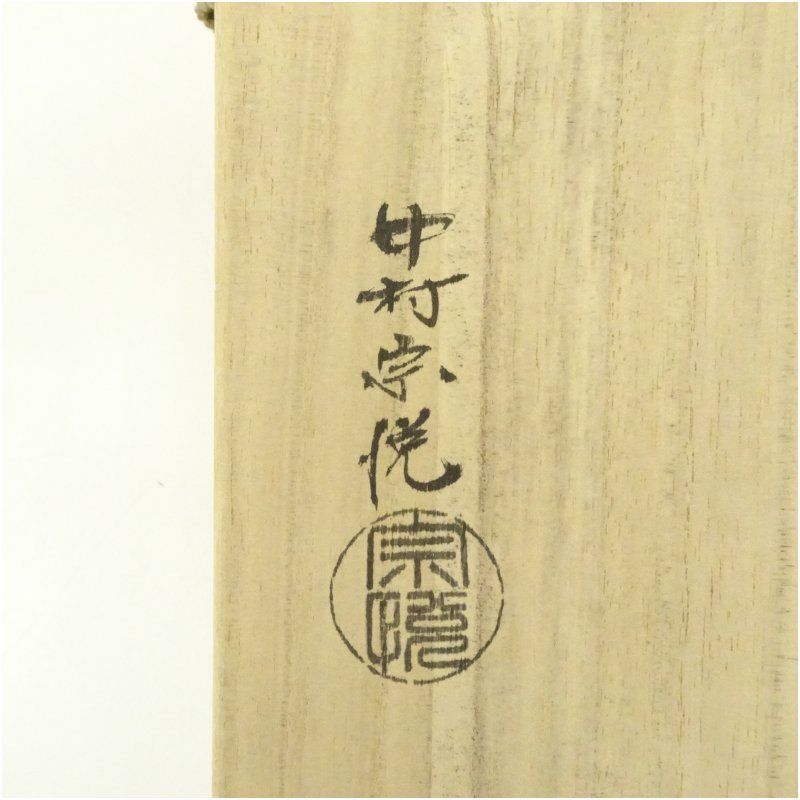 中村宗悦
宗悦